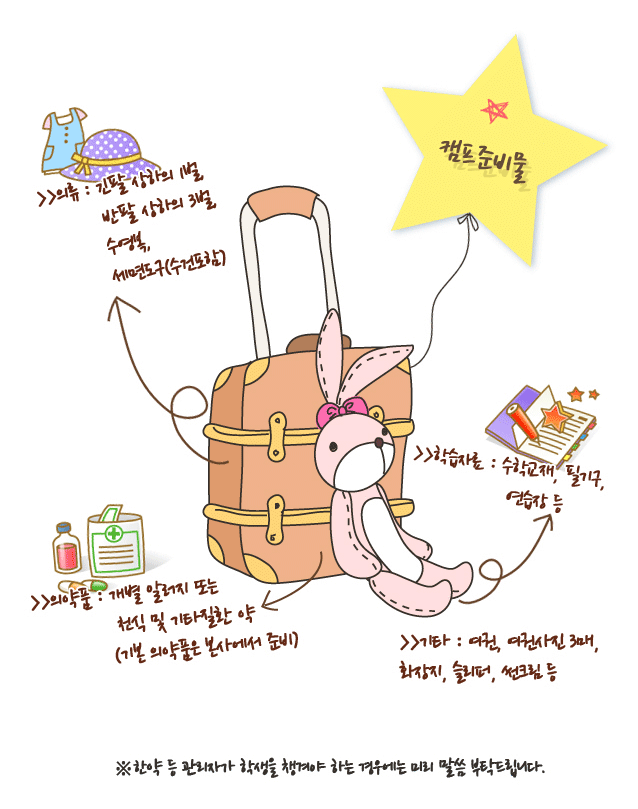 캠프 준비물
>>의류 : 긴팔 상하의 1벌
반팔 상하의 3벌
수영복,
세면도구(수건포함)
>>학습자료 : 수학교재, 필기구,
연습장 등
>>의약품 : 개별 알러지 또는
천식 및 기타질환 약
(기본 의약품은 본사에서 준비)
>>기타 : 여권, 여권사진 3매,
화장지, 슬리퍼, 썬크림 등
※한약 등 관리자가 학생을 챙겨야 하는 경우에는 미리 말씀 부탁드립니다.